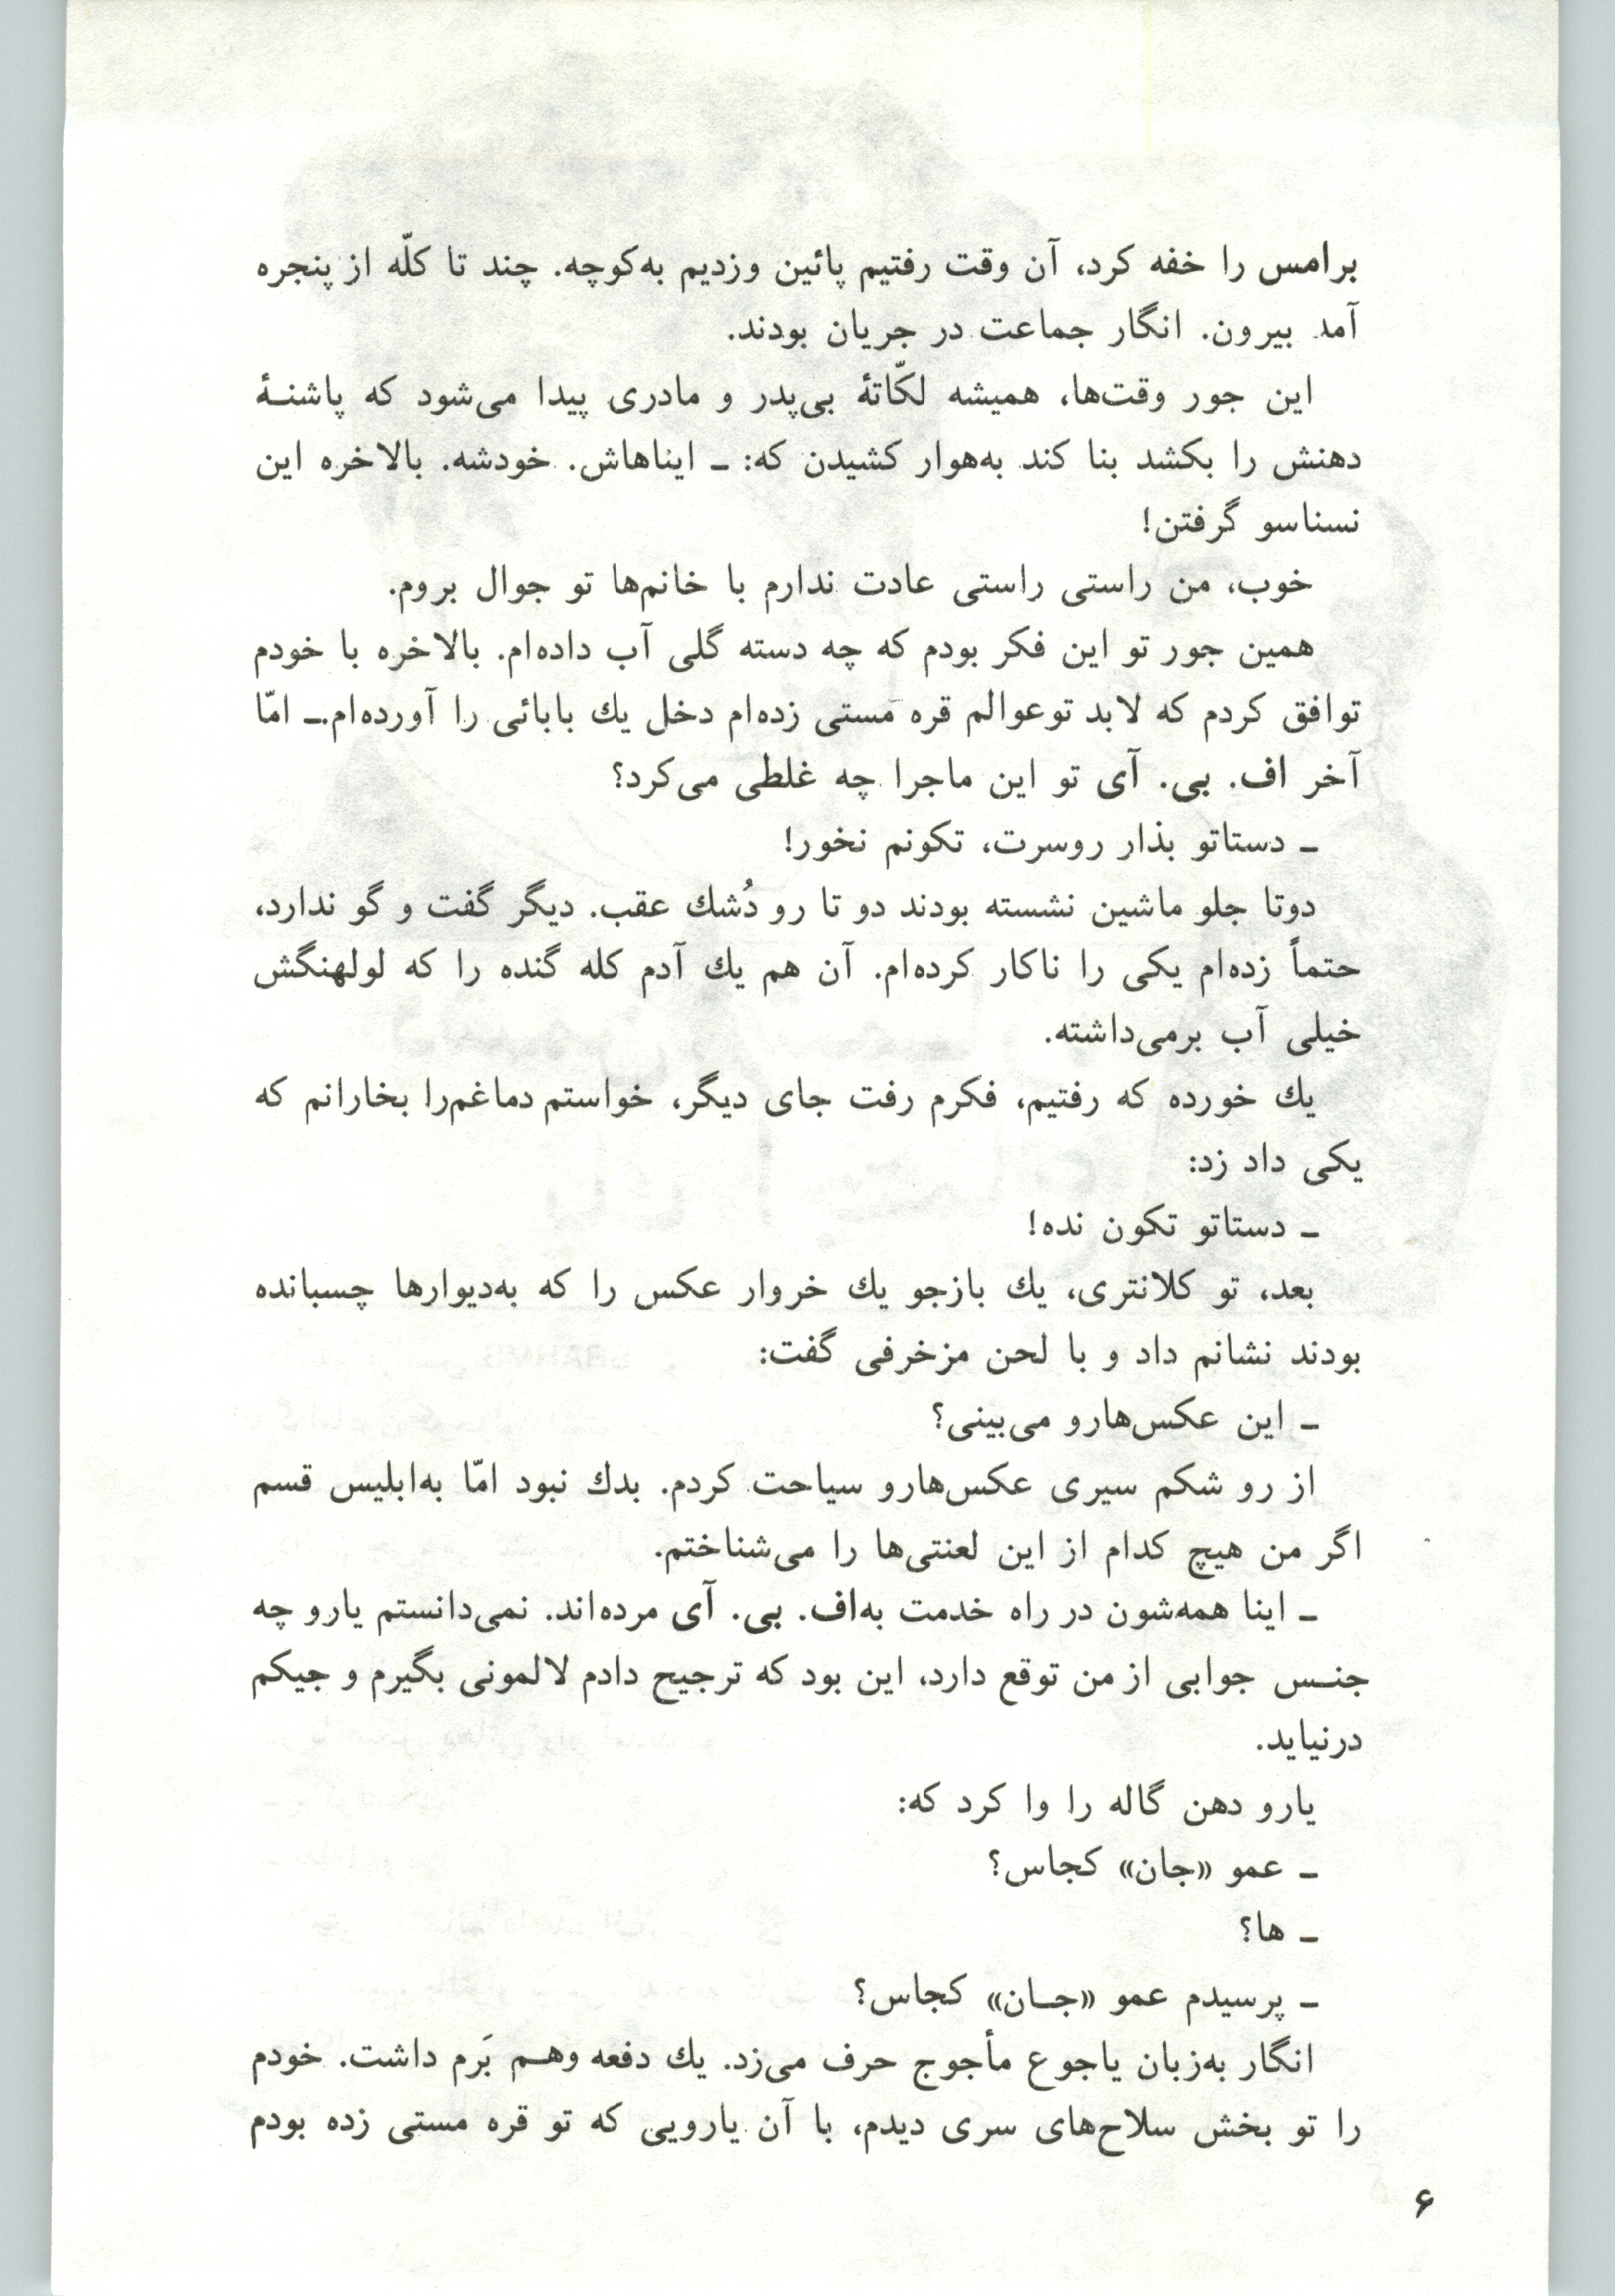 برامس را خفه کرد، آن وقت رفتیم پائین وزدیم به‌کوچه. چند تا کلّه از پنجره
آمد بیرون. انگار جماعت در جریان بودند.
این جور وقت‌ها، همیشه لکّاتهٔ بی‌پدر و مادری پیدا می‌شود که پاشنـهٔ
دهنش را بکشد بنا کند به‌هوار کشیدن که: ـ ایناهاش. خودشه. بالاخره این
نسناسو گرفتن!
خوب، من راستی راستی عادت ندارم با خانم‌ها تو جوال بروم.
همین جور تو این فکر بودم که چه دسته گلی آب داده‌ام. بالاخره با خودم
توافق کردم که لابد توعوالم قره مَستی زده‌ام دخل یك بابائی را آورده‌ام.ـ امّا
آخر اف. بی. آی تو این ماجرا چه غلطی می‌کرد؟
ـ دستاتو بذار روسرت، تکونم نخور!
دوتا جلو ماشین نشسته بودند دو تا رو دُشك عقب. دیگر گفت و گو ندارد،
حتماً زده‌ام یکی را ناکار کرده‌ام. آن هم یك آدم کله گنده را که لولهنگش
خیلی آب برمی‌داشته.
یك خورده که رفتیم، فکرم رفت جای دیگر، خواستم دماغم‌را بخارانم که
یکی داد زد:
ـ دستاتو تکون نده!
بعد، تو کلانتری، یك بازجو یك خروار عکس را که به‌دیوارها چسبانده
بودند نشانم داد و با لحن مزخرفی گفت:
ـ این عکس‌هارو می‌بینی؟
از رو شکم سیری عکس‌هارو سیاحت کردم. بدك نبود امّا به‌ابلیس قسم
اگر من هیچ کدام از این لعنتی‌ها را می‌شناختم.
ـ اینا همه‌شون در راه خدمت به‌اف. بی. آی مرده‌اند. نمی‌دانستم یارو چه
جنـس جوابی از من توقع دارد، این بود که ترجیح دادم لالمونی بگیرم و جیکم
درنیاید.
یارو دهن گاله را وا کرد که:
ـ عمو «جان» کجاس؟
ـ ها؟
ـ پرسیدم عمو «جـان» کجاس؟
انگار به‌زبان یاجوع مأجوج حرف می‌زد. یك دفعه وهـم بَرم داشت. خودم
را تو بخش سلاح‌های سری دیدم، با آن یارویی که تو قره مستی زده بودم
۶